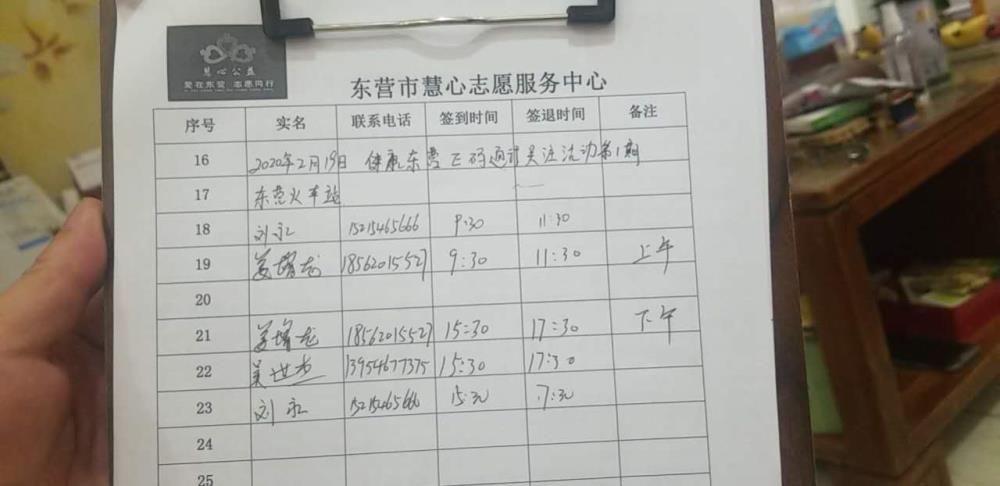 慧心公益
爱在东营 志愿同行
东营市慧心志愿服务中心
序号 实名 联系电话 签到时间 签退时间 备注
16 2020年2月19日 健康东营 码通 关注活动第1期
17 东营火车站
18 刘永 15215465666 9:30 11:30
19 姜增龙 18562015527 9:30 11:30 上午
20
21 姜增龙 18562015527 15:30 17:30 下午
22 吴世杰 13954677375 15:30 17:30
23 刘永 15215465666 15:30 17:30
24
25